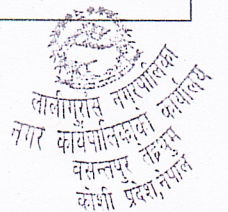 लालीगुराँस नगरपालिका
नगर कार्यपालिकाको कार्यालय
वसन्तपुर, तेह्रथुम
कोशी प्रदेश, नेपाल